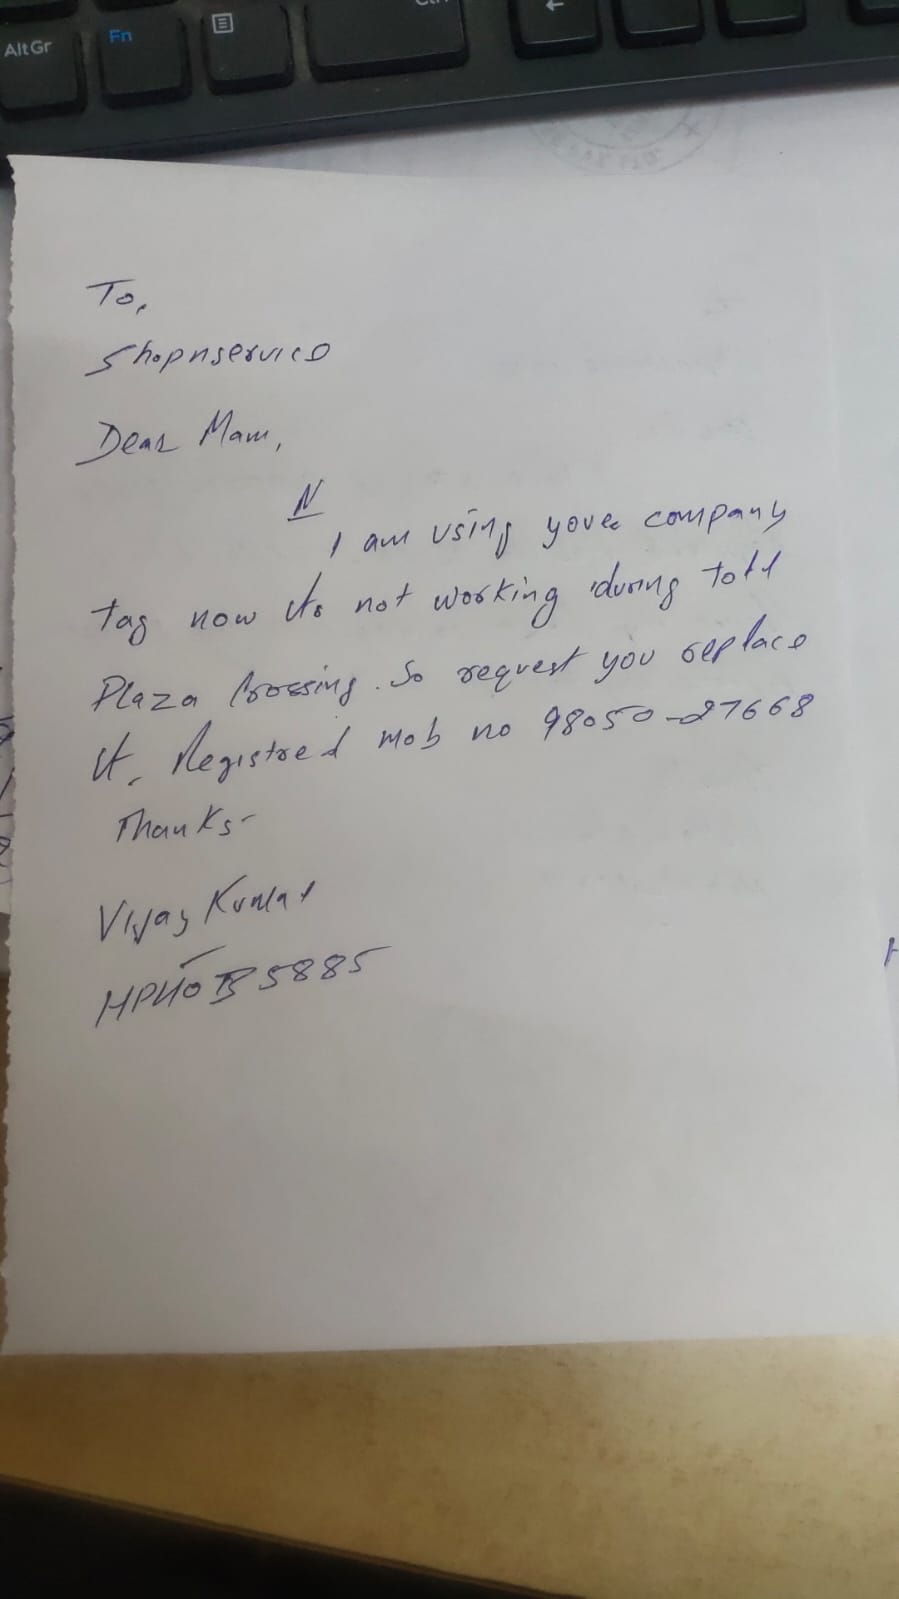 AltGr
Fn
To,
Shopnservice
Dear Mam,
N
I am using youre company
tag now its not working during totl
Plaza Crossing. So request you replace
it. Registred mob no 98050-27668
Thanks-
Vijay Kumar
5885